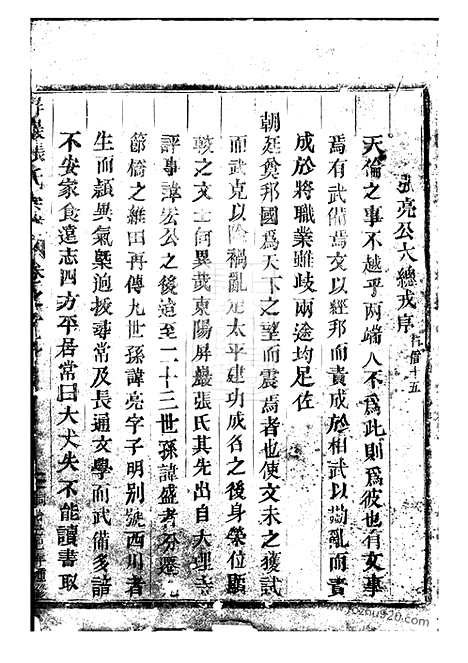 張亮公大總戎序 行信十五
天倫之事不越乎兩端人不爲此則爲彼也有文事
焉有武備焉文以經邦而責成於相武以勘亂而責
成於將職業雖歧兩途均足佐
朝廷奠邦國爲天下之望而震焉者也使文未之獲試
而武克以除禍亂定太平建功成名之後身榮位顯
較之文士何異哉東陽屏巖張氏其先出自大理寺
評事諱宏公之後迨至二十三世孫諱盛考分遷
節橋之維田再傳九世孫諱亮字子明別號西川者
生而穎異氣槩逈拔尋常及長通文學而武備多諳
不安家食遠志四方平居常曰大丈夫不能讀書取
屏巖張氏宗